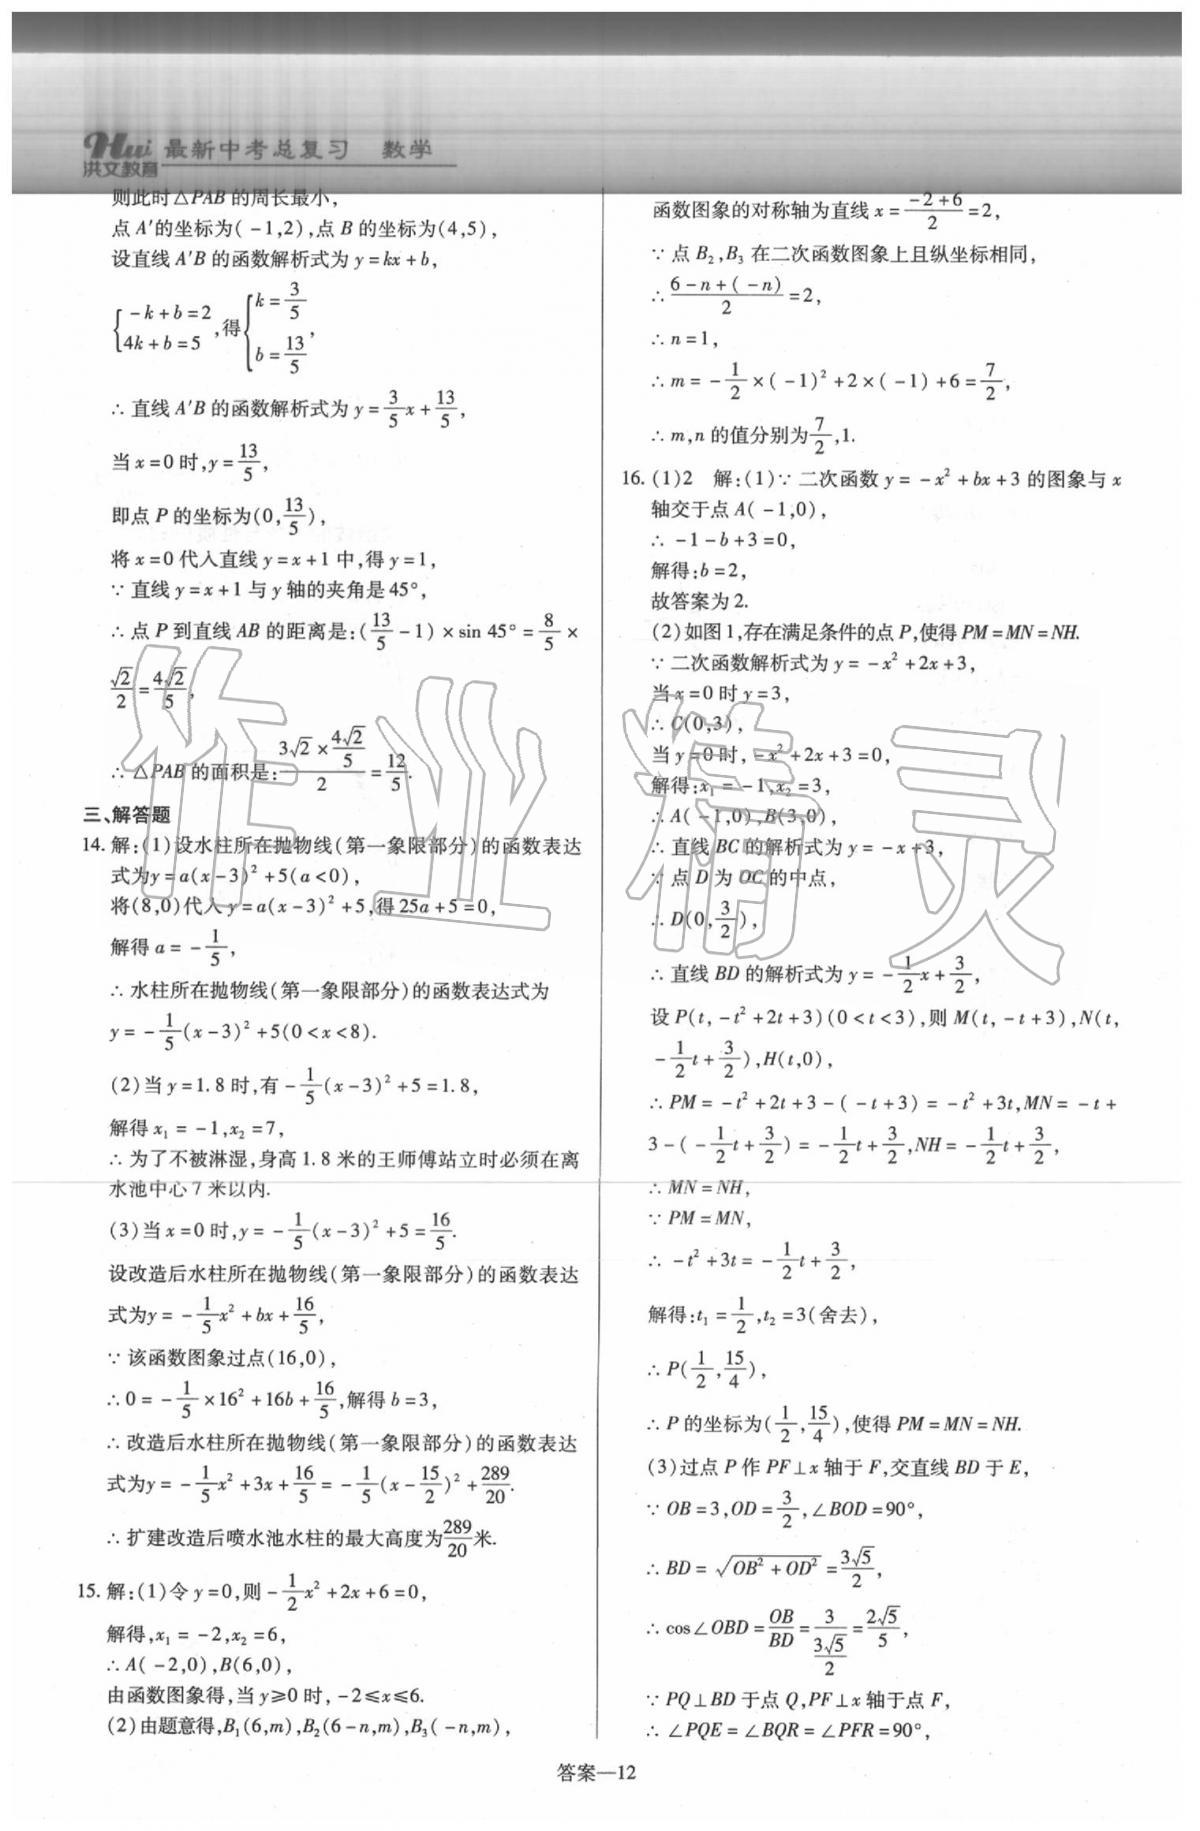 Hui 最新中考总复习 数学
洪文教育
则此时△PAB的周长最小,
点A'的坐标为(-1,2),点B的坐标为(4,5),
设直线A'B的函数解析式为y=kx+b,
{-k+b=2, 4k+b=5, 得{k=3/5, b=13/5,
∴直线A'B的函数解析式为y=3/5x+13/5,
当x=0时,y=13/5,
即点P的坐标为(0,13/5),
将x=0代入直线y=x+1中,得y=1,
∵直线y=x+1与y轴的夹角是45°,
∴点P到直线AB的距离是:(13/5-1)×sin 45°=8/5×
√2/2=4√2/5,
∴△PAB的面积是:(3√2×4√2/5)/2=12/5.
三、解答题
14.解:(1)设水柱所在抛物线(第一象限部分)的函数表达
式为y=a(x-3)²+5(a<0),
将(8,0)代入y=a(x-3)²+5,得25a+5=0,
解得a=-1/5,
∴水柱所在抛物线(第一象限部分)的函数表达式为
y=-1/5(x-3)²+5(0<x<8).
(2)当y=1.8时,有-1/5(x-3)²+5=1.8,
解得x₁=-1,x₂=7,
∴为了不被淋湿,身高1.8米的王师傅站立时必须在离
水池中心7米以内.
(3)当x=0时,y=-1/5(x-3)²+5=16/5.
设改造后水柱所在抛物线(第一象限部分)的函数表达
式为y=-1/5x²+bx+16/5,
∵该函数图象过点(16,0),
∴0=-1/5×16²+16b+16/5,解得b=3,
∴改造后水柱所在抛物线(第一象限部分)的函数表达
式为y=-1/5x²+3x+16/5=-1/5(x-15/2)²+289/20.
∴扩建改造后喷水池水柱的最大高度为289/20米.
15.解:(1)令y=0,则-1/2x²+2x+6=0,
解得,x₁=-2,x₂=6,
∴A(-2,0),B(6,0),
由函数图象得,当y≥0时,-2≤x≤6.
(2)由题意得,B₁(6,m),B₂(6-n,m),B₃(-n,m),
函数图象的对称轴为直线x=(-2+6)/2=2,
∵点B₂,B₃在二次函数图象上且纵坐标相同,
∴(6-n+(-n))/2=2,
∴n=1,
∴m=-1/2×(-1)²+2×(-1)+6=7/2,
∴m,n的值分别为7/2,1.
16.(1)2 解:(1)∵二次函数y=-x²+bx+3的图象与x
轴交于点A(-1,0),
∴-1-b+3=0,
解得:b=2,
故答案为2.
(2)如图1,存在满足条件的点P,使得PM=MN=NH.
∵二次函数解析式为y=-x²+2x+3,
当x=0时y=3,
∴C(0,3),
当y=0时,-x²+2x+3=0,
解得:x₁=-1,x₂=3,
∴A(-1,0),B(3,0),
∴直线BC的解析式为y=-x+3,
∵点D为OC的中点,
∴D(0,3/2),
∴直线BD的解析式为y=-1/2x+3/2,
设P(t,-t²+2t+3)(0<t<3),则M(t,-t+3),N(t,
-1/2t+3/2),H(t,0),
∴PM=-t²+2t+3-(-t+3)=-t²+3t,MN=-t+
3-(-1/2t+3/2)=-1/2t+3/2,NH=-1/2t+3/2,
∴MN=NH,
∵PM=MN,
∴-t²+3t=-1/2t+3/2,
解得:t₁=1/2,t₂=3(舍去),
∴P(1/2,15/4),
∴P的坐标为(1/2,15/4),使得PM=MN=NH.
(3)过点P作PF⊥x轴于F,交直线BD于E,
∵OB=3,OD=3/2,∠BOD=90°,
∴BD=√(OB²+OD²)=3√5/2,
∴cos∠OBD=OB/BD=3/(3√5/2)=2√5/5,
∵PQ⊥BD于点Q,PF⊥x轴于点F,
∴∠PQE=∠BQR=∠PFR=90°,
答案—12
作业精灵